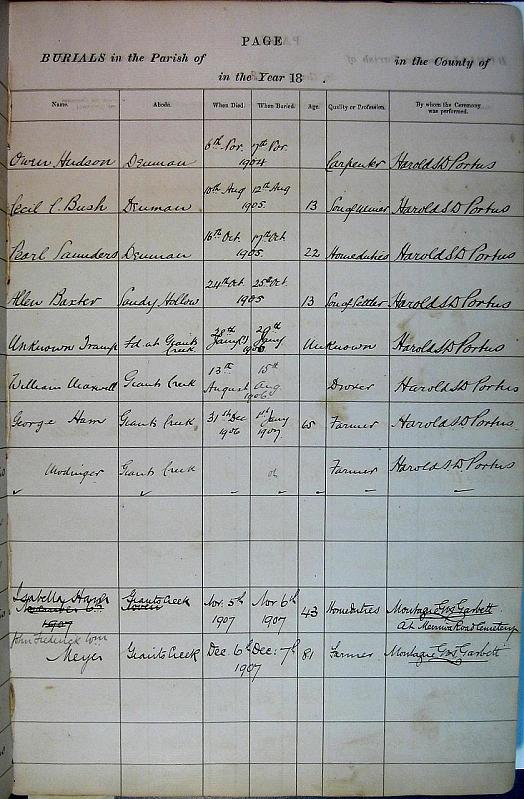 PAGE
BURIALS in the Parish of in the County of
in the Year 18 .
Name. Abode. When Died. When Buried. Age. Quality or Profession. By whom the Ceremony was performed.
Owen Hudson Denman 6th 7th 1904 Carpenter Harold S D Portus
Cecil C. Bush Denman 10th Aug 12th Aug 1905 13 Son of Harold S D Portus
Pearl Saunders Denman 16th Oct. 17th Oct. 1905 22 Homeduties Harold S D Portus
Allen Baxter Sandy Hollow 24th Oct 25th Oct. 1905 13 Son of Settler Harold S D Portus
Unknown Tramp Fd. at Giants Creek 29th Jany 1906 Unknown Harold S D Portus
William Maxwell Giants Creek 13th August 15th Aug 1906 Drover Harold S D Portus
George Ham Giants Creek 31st Dec 1906 1st Jany 1907 65 Farmer Harold S D Portus
Giants Creek Farmer Harold S D Portus
Isabella Ham Giants Creek Nov. 5th 1907 Nov 6th 1907 43 Homeduties Montague Garbett
November 6th
1907
At Merriwa Road Cemetery
John Frederick Wm
Meyer Giants Creek Dec. 6th Dec: 7th 1907 81 Farmer Montague Garbett